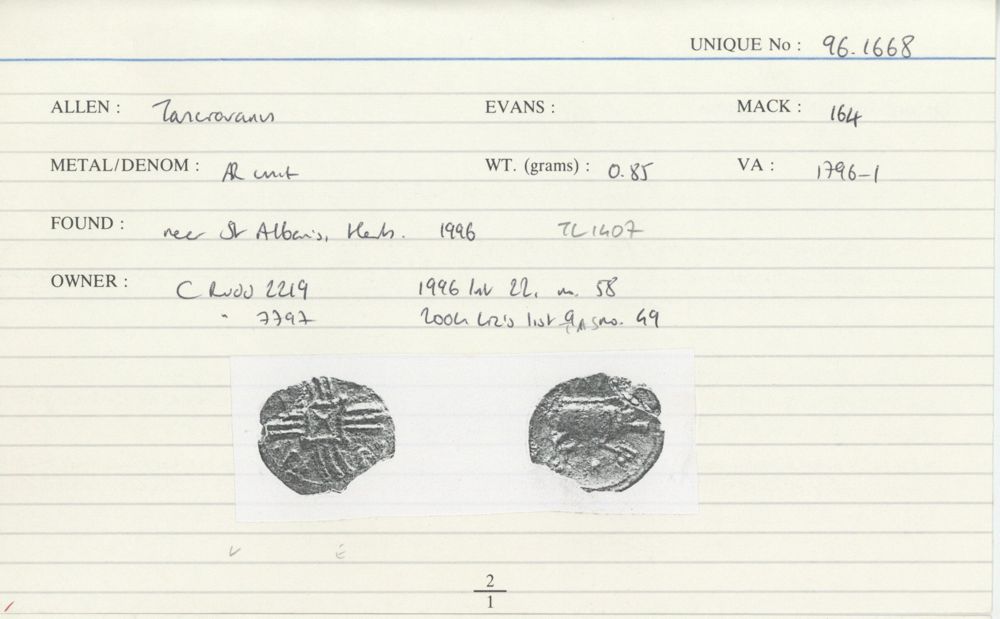 UNIQUE No : 96.1668
ALLEN : Tasciovanus EVANS : MACK : 164
METAL/DENOM : AR unit WT. (grams) : 0.85 VA : 1796-1
FOUND : near St Albans, Herts. 1996 TL1407
OWNER : C RUDD 2219 1996 list 22, no. 58
" 7797 2004 Liz's list 9 no. 49
2
1